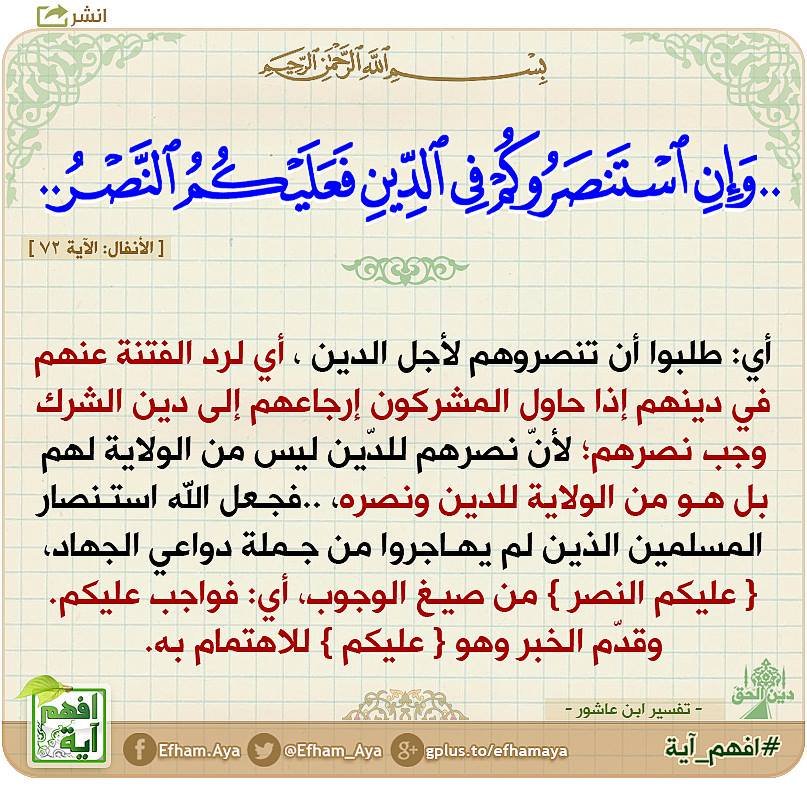 انشر
بِسْمِ اللَّهِ الرَّحْمَٰنِ الرَّحِيمِ
..وَإِنِ ٱسْتَنصَرُوكُمْ فِي ٱلدِّينِ فَعَلَيْكُمُ ٱلنَّصْرُ..
[ الأنفال: الآية ٧٢ ]
أي: طلبوا أن تنصروهم لأجل الدين ، أي لرد الفتنة عنهم
في دينهم إذا حاول المشركون إرجاعهم إلى دين الشرك
وجب نصرهم؛ لأنّ نصرهم للدّين ليس من الولاية لهم
بل هـو من الولاية للدين ونصره، ..فجـعل الله استـنصار
المسلمين الذين لم يهـاجروا من جـملة دواعي الجهاد،
{ عليكم النصر } من صيـغ الوجوب، أي: فواجب عليكم.
وقدّم الخبر وهو { عليكم } للاهتمام به.
دين الحق
- تفسير ابن عاشور -
افهم
آية
Efham.Aya
@Efham_Aya
gplus.to/efhamaya
#افهم_آية